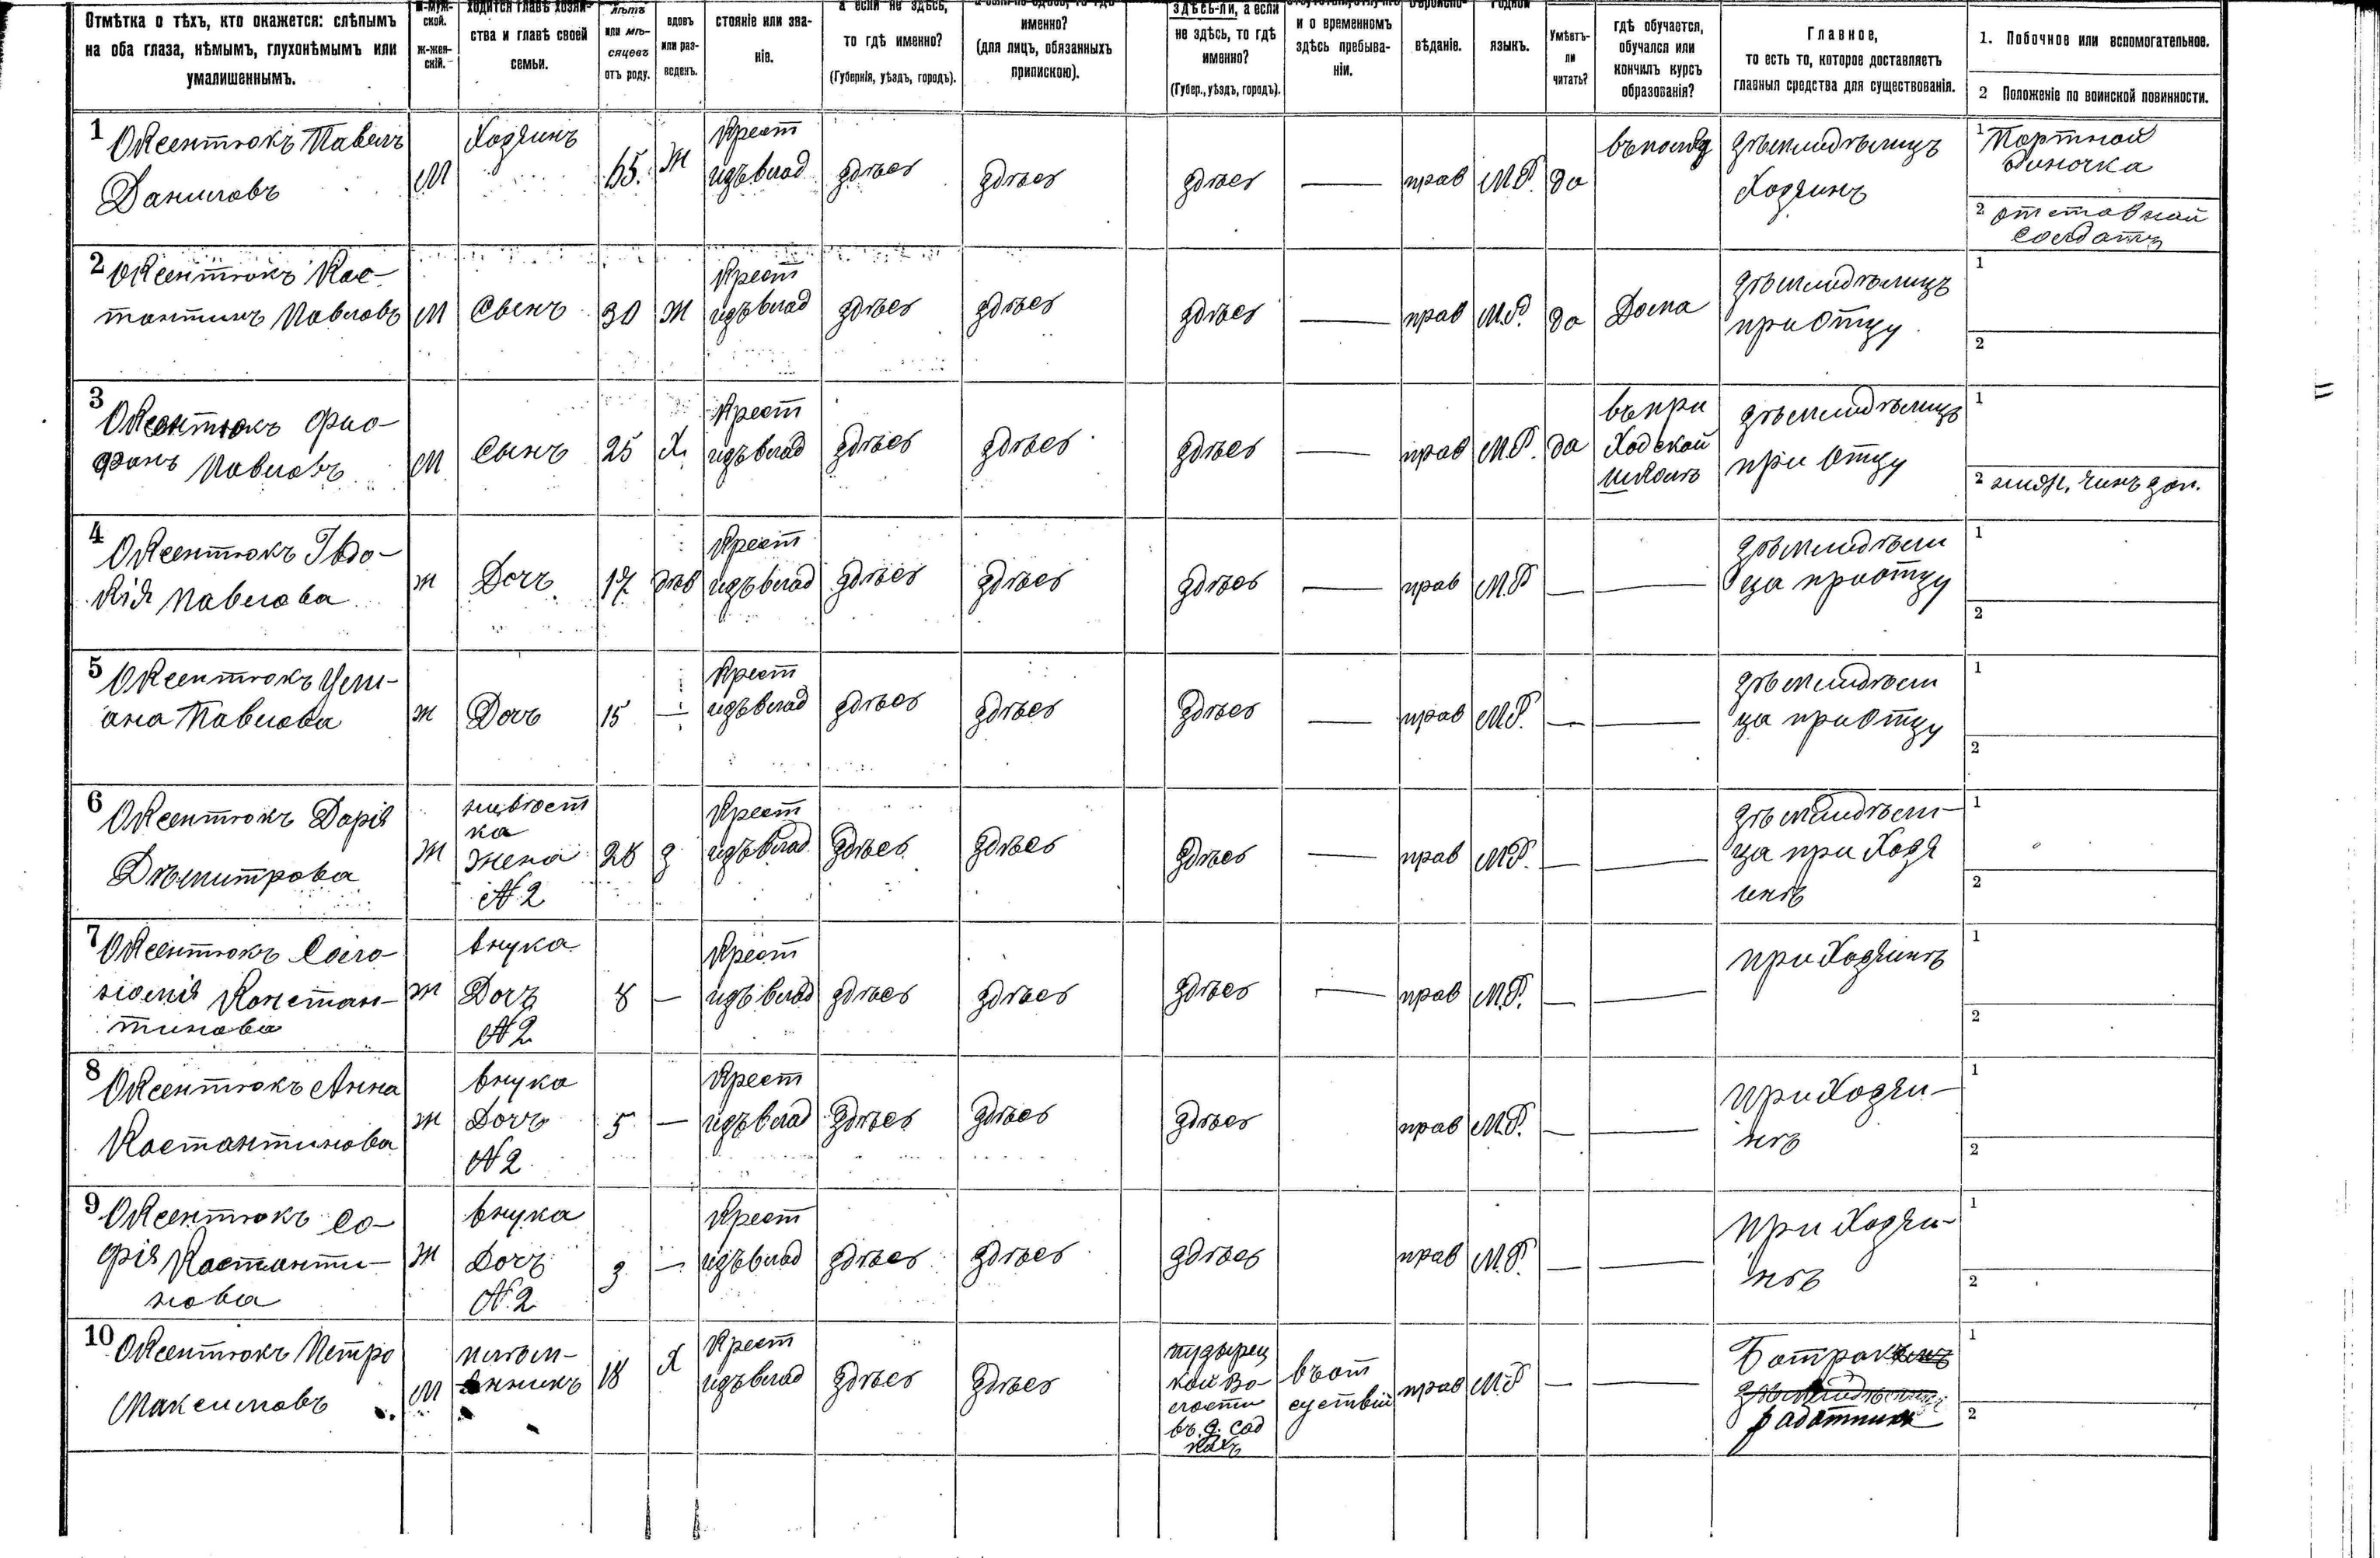 Отмѣтка о тѣхъ, кто окажется: слѣпымъ
на оба глаза, нѣмымъ, глухонѣмымъ или
умалишеннымъ.
м-муж-
ской.
ж-жен-
скій.
ходится главѣ хозяй-
ства и главѣ своей
семьи.
лѣтъ
или мѣ-
сяцевъ
отъ роду.
вдовъ
или раз-
веденъ.
стояніе или зва-
ніе.
а если не здѣсь,
то гдѣ именно?
(Губернія, уѣздъ, городъ).
именно?
(для лицъ, обязанныхъ
припискою).
здѣсь-ли, а если
не здѣсь, то гдѣ
именно?
(Губер., уѣздъ, городъ).
и о временномъ
здѣсь пребыва-
ніи.
вѣданіе.
родной
языкъ.
Умѣетъ-
ли
читать?
гдѣ обучается,
обучался или
кончилъ курсъ
образованія?
Главное,
то есть то, которое доставляетъ
главныя средства для существованія.
1. Побочное или вспомогательное.
2 Положеніе по воинской повинности.
1
Оксентюкъ Павелъ
Даниловъ
м
Хозяинъ
65.
ж
Крест
изъ влад
здѣсь
здѣсь
здѣсь
—
прав
М.Р.
да
Хозяинъ
1 Портной
2 отставной
солдатъ
2
Оксентюкъ Кос-
тантинъ Павловъ
м
Сынъ
30
ж
Крест
изъ влад
здѣсь
здѣсь
здѣсь
—
прав
М.Р.
да
Дома
при Отцу
1
2
3
Оксентюкъ Фио-
фанъ Павловъ
м
Сынъ
25
Х
Крест
изъ влад
здѣсь
здѣсь
здѣсь
—
прав
М.Р.
да
въ при
ходской
школѣ
при Отцу
1
2 нижн. чинъ зап.
4
Оксентюкъ Евдо-
кія Павлова
ж
Дочъ
17
дѣв
Крест
изъ влад
здѣсь
здѣсь
здѣсь
—
прав
М.Р
—
—
ца при отцу
1
2
5
Оксентюкъ Ули-
ана Павлова
ж
Дочъ
15
—
Крест
изъ влад
здѣсь
здѣсь
здѣсь
—
прав
М.Р.
—
—
ца при Отцу
1
2
6
Оксентюкъ Дарія
Дъмитрова
ж
нивѣст
ка
жена
№ 2
28
з
Крест
изъ влад
здѣсь
здѣсь
здѣсь
—
прав
М.Р.
—
—
ца при Хозя
инѣ
1
2
7
Оксентюкъ Соло-
момія Констан-
тинова
ж
внука
Дочъ
№ 2
8
—
Крест
изъ влад
здѣсь
здѣсь
здѣсь
—
прав
М.Р.
—
—
при Хозяинѣ
1
2
8
Оксентюкъ Анна
Костантинова
ж
внука
Дочъ
№ 2
5
—
Крест
изъ влад
здѣсь
здѣсь
здѣсь
прав
М.Р.
—
—
при Хозяи-
нѣ
1
2
9
Оксентюкъ Со-
фія Костанти-
нова
ж
внука
Дочъ
№ 2
3
—
Крест
изъ влад
здѣсь
здѣсь
здѣсь
прав
М.Р.
—
—
при Хозяи-
нѣ
1
2
10
Оксентюкъ Петро
Максимовъ
м
18
Х
Крест
изъ влад
здѣсь
здѣсь
пузырец
кой Во-
лости
въ д. сад
кахъ
въ от
суствіи
прав
М.Р
—
—
Батрак
работник
1
2